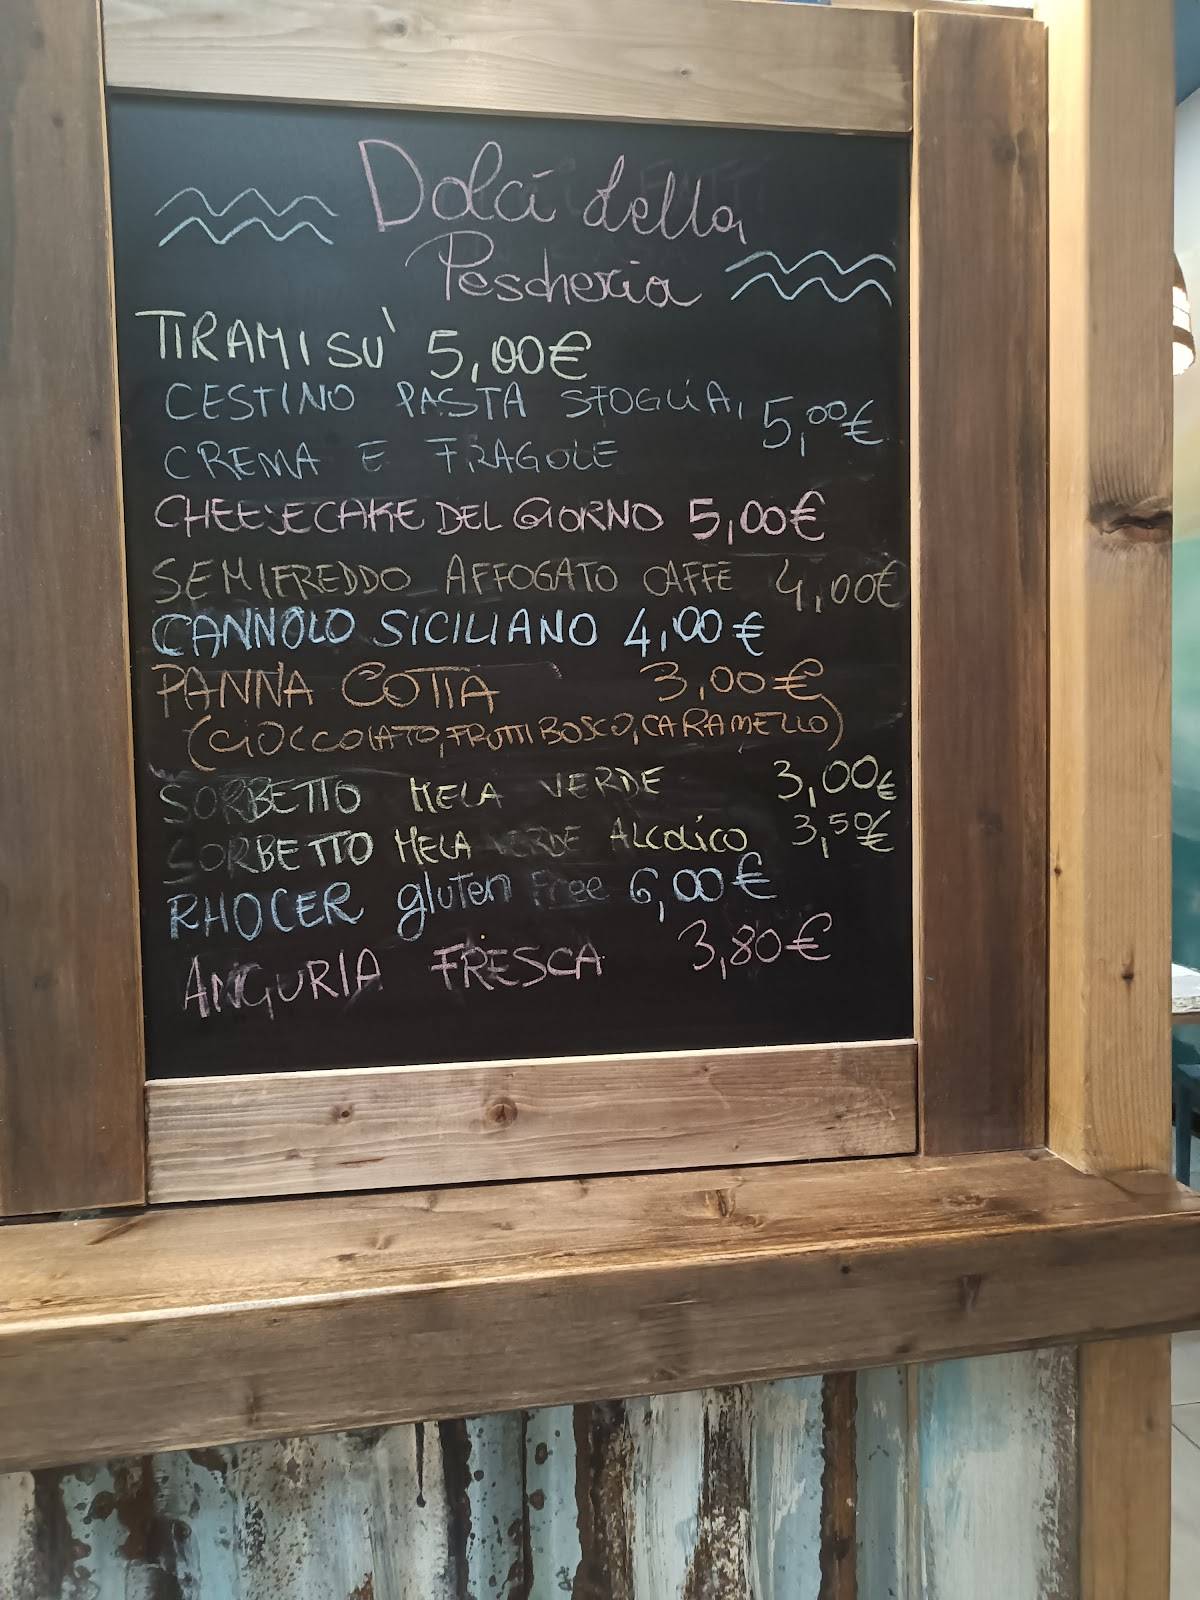 Dolci della
Pescheria
TIRAMISÙ 5,00€
CESTINO PASTA SFOGLIA, 5,00€
CREMA E FRAGOLE
CHEESECAKE DEL GIORNO 5,00€
SEMIFREDDO AFFOGATO CAFFE 4,00€
CANNOLO SICILIANO 4,00€
PANNA COTTA 3,00€
(CIOCCOLATO, FRUTTI BOSCO, CARAMELLO)
SORBETTO MELA VERDE 3,00€
SORBETTO MELA VERDE ALCOLICO 3,50€
RHOCER gluten Free 6,00€
ANGURIA FRESCA 3,80€